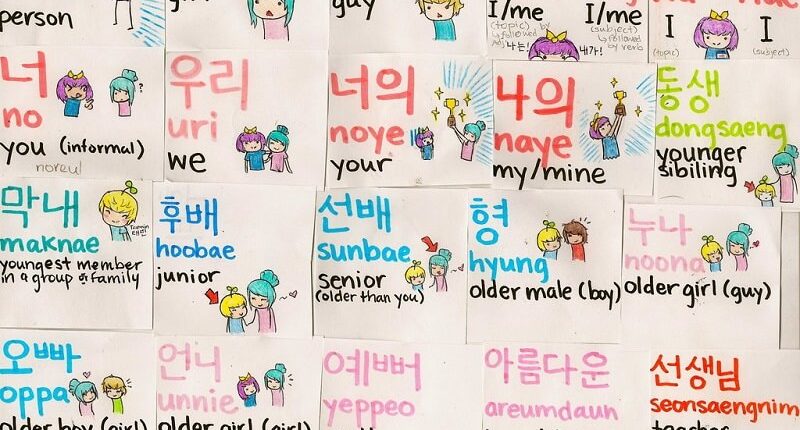 person
girl
guy
I/me
(topic)
by
followed
Adj
나는!
I/me
(subject)
followed
by verb
내가!
I
(topic)
I
(subject)
너
no
you (informal)
noreul
?
우리
uri
we
너의
noye
your
나의
naye
my/mine
동생
dongsaeng
younger
sibiling
막내
maknae
youngest member
in a group or family
후배
hoobae
junior
선배
sunbae
senior
(older than you)
형
hyung
older male (boy)
누나
noona
older girl (guy)
오빠
oppa
older boy (girl)
언니
unnie
older girl (girl)
예뻐
yeppeo
아름다운
areumdaun
선생님
seonsaengnim
teacher